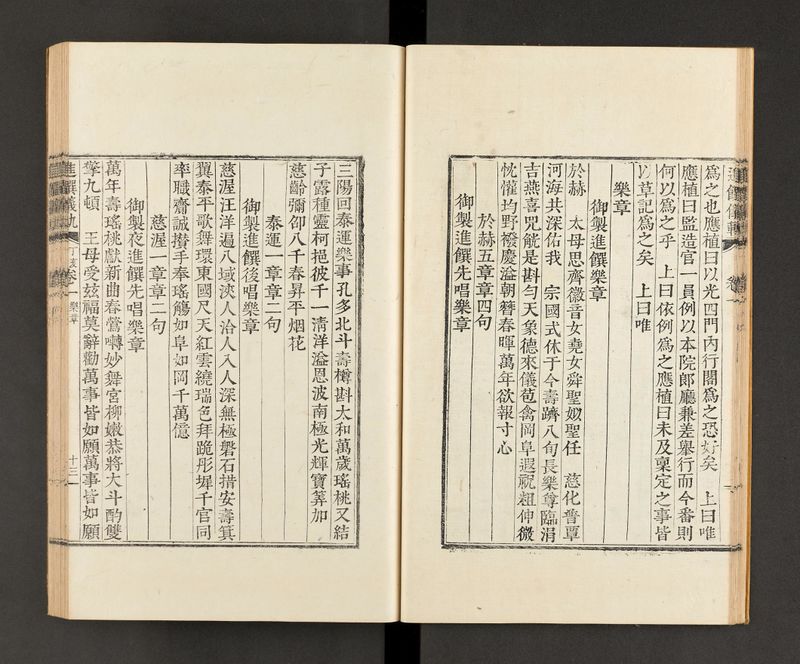 爲之也應植曰以光四門內行閤爲之恐好矣　上曰唯
應植曰監造官一員例以本院郞廳兼差擧行而今番則
何以爲之乎　上曰依例爲之應植曰未及稟定之事皆
以草記爲之矣　上曰唯
樂章
御製進饌樂章
於赫　太母思齊徽音女堯女舜聖姒聖任　慈化普覃
河海共深佑我　宗國式休于今壽躋八旬長樂尊臨涓
吉燕喜兕觥是斟勻天象德來儀苞禽岡阜遐祝粗伸微
忱懽均野癈慶溢朝簪春暉萬年欲報寸心
於赫五章章四句
御製進饌先唱樂章
三陽回泰運樂事孔多北斗壽樽斟大和萬歲瑤桃又結
子露種靈柯挹彼千一淸洋溢恩波南極光輝寶筭加
慈齡彌卲八千春昇平烟花
泰運一章章二句
御製進饌後唱樂章
慈渥汪洋遍八域浹人洽人入人深無極磐石措安壽箕
翼泰平歌舞環東國尺天紅雲繞瑞色拜跪彤墀千官同
率職齋誠攢手奉瑤觴如阜如岡千萬億
慈渥一章章二句
御製夜進饌先唱樂章
萬年壽瑤桃獻新曲春鶯囀妙舞宮柳嫩恭將大斗酌雙
擎九頓　王母受玆福莫辭勸萬事皆如願萬事皆如願
進饌儀軌　丁亥　卷一　樂章　十三